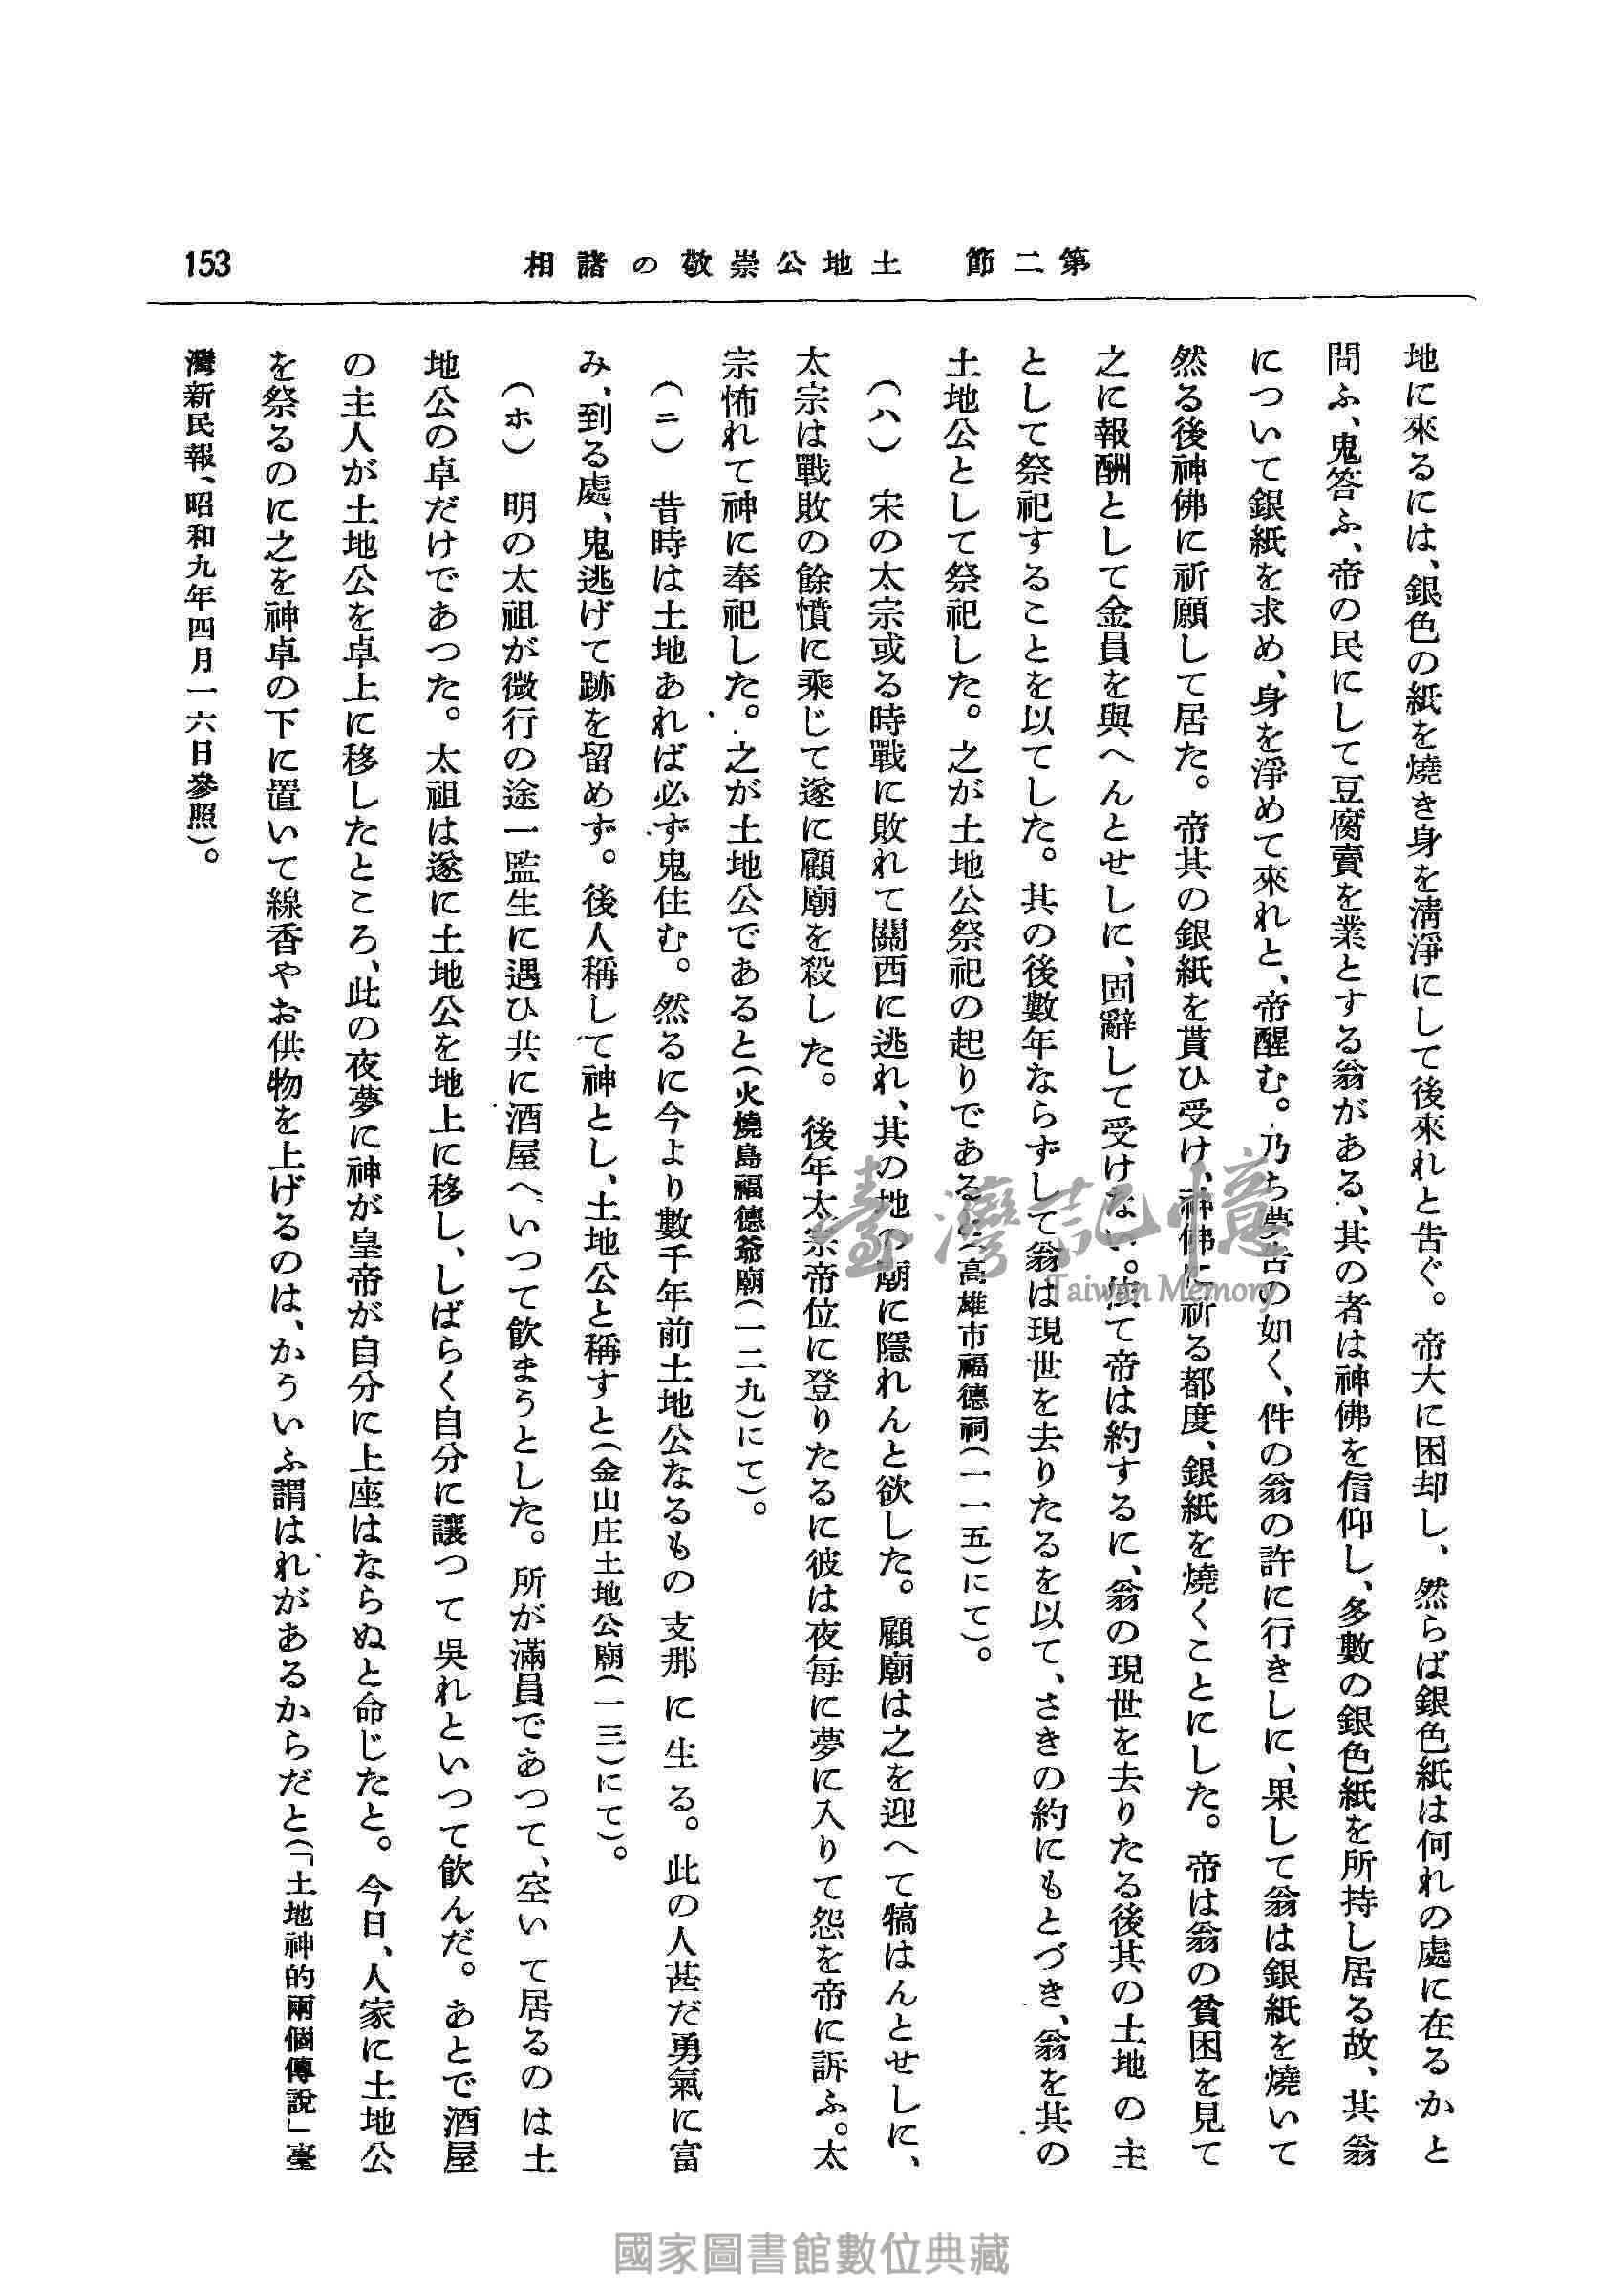 第二節　土地公崇敬の諸相
153
地に來るには、銀色の紙を燒き身を清淨にして後來れと告ぐ。帝大に困却し、然らば銀色紙は何れの處に在るかと
問ふ、鬼答ふ、帝の民にして豆腐賣を業とする翁がある、其の者は神佛を信仰し、多數の銀色紙を所持し居る故、其翁
について銀紙を求め、身を淨めて來れと、帝醒む。乃ち夢告の如く、件の翁の許に行きしに、果して翁は銀紙を燒いて
然る後神佛に祈願して居た。帝其の銀紙を貰ひ受け、神佛に祈る都度、銀紙を燒くことにした。帝は翁の貧困を見て
之に報酬として金員を與へんとせしに、固辭して受けない。依て帝は約するに、翁の現世を去りたる後其の土地の主
として祭祀することを以てした。其の後數年ならずして翁は現世を去りたるを以て、さきの約にもとづき、翁を其の
土地公として祭祀した。之が土地公祭祀の起りであると(高雄市福德祠(一一五)にて)。
(ハ)　宋の太宗或る時戰に敗れて關西に逃れ、其の地の廟に隱れんと欲した。顧廟は之を迎へて犒はんとせしに、
太宗は戰敗の餘憤に乘じて遂に顧廟を殺した。後年太宗帝位に登りたるに彼は夜每に夢に入りて怨を帝に訴ふ。太
宗怖れて神に奉祀した。之が土地公であると(火燒島福德爺廟(一二九)にて)。
(ニ)　昔時は土地あれば必ず鬼住む。然るに今より數千年前土地公なるもの支那に生る。此の人甚だ勇氣に富
み、到る處、鬼逃げて跡を留めず。後人稱して神とし、土地公と稱すと(金山庄土地公廟(一三)にて)。
(ホ)　明の太祖が微行の途一監生に遇ひ共に酒屋へいつて飮まうとした。所が滿員であつて、空いて居るのは土
地公の卓だけであつた。太祖は遂に土地公を地上に移し、しばらく自分に讓つて吳れといつて飮んだ。あとで酒屋
の主人が土地公を卓上に移したところ、此の夜夢に神が皇帝が自分に上座はならぬと命じたと。今日、人家に土地公
を祭るのに之を神卓の下に置いて線香やお供物を上げるのは、かういふ謂はれがあるからだと(「土地神的兩個傳說」臺
灣新民報、昭和九年四月一六日參照)。
臺灣記憶
Taiwan Memory
國家圖書館數位典藏